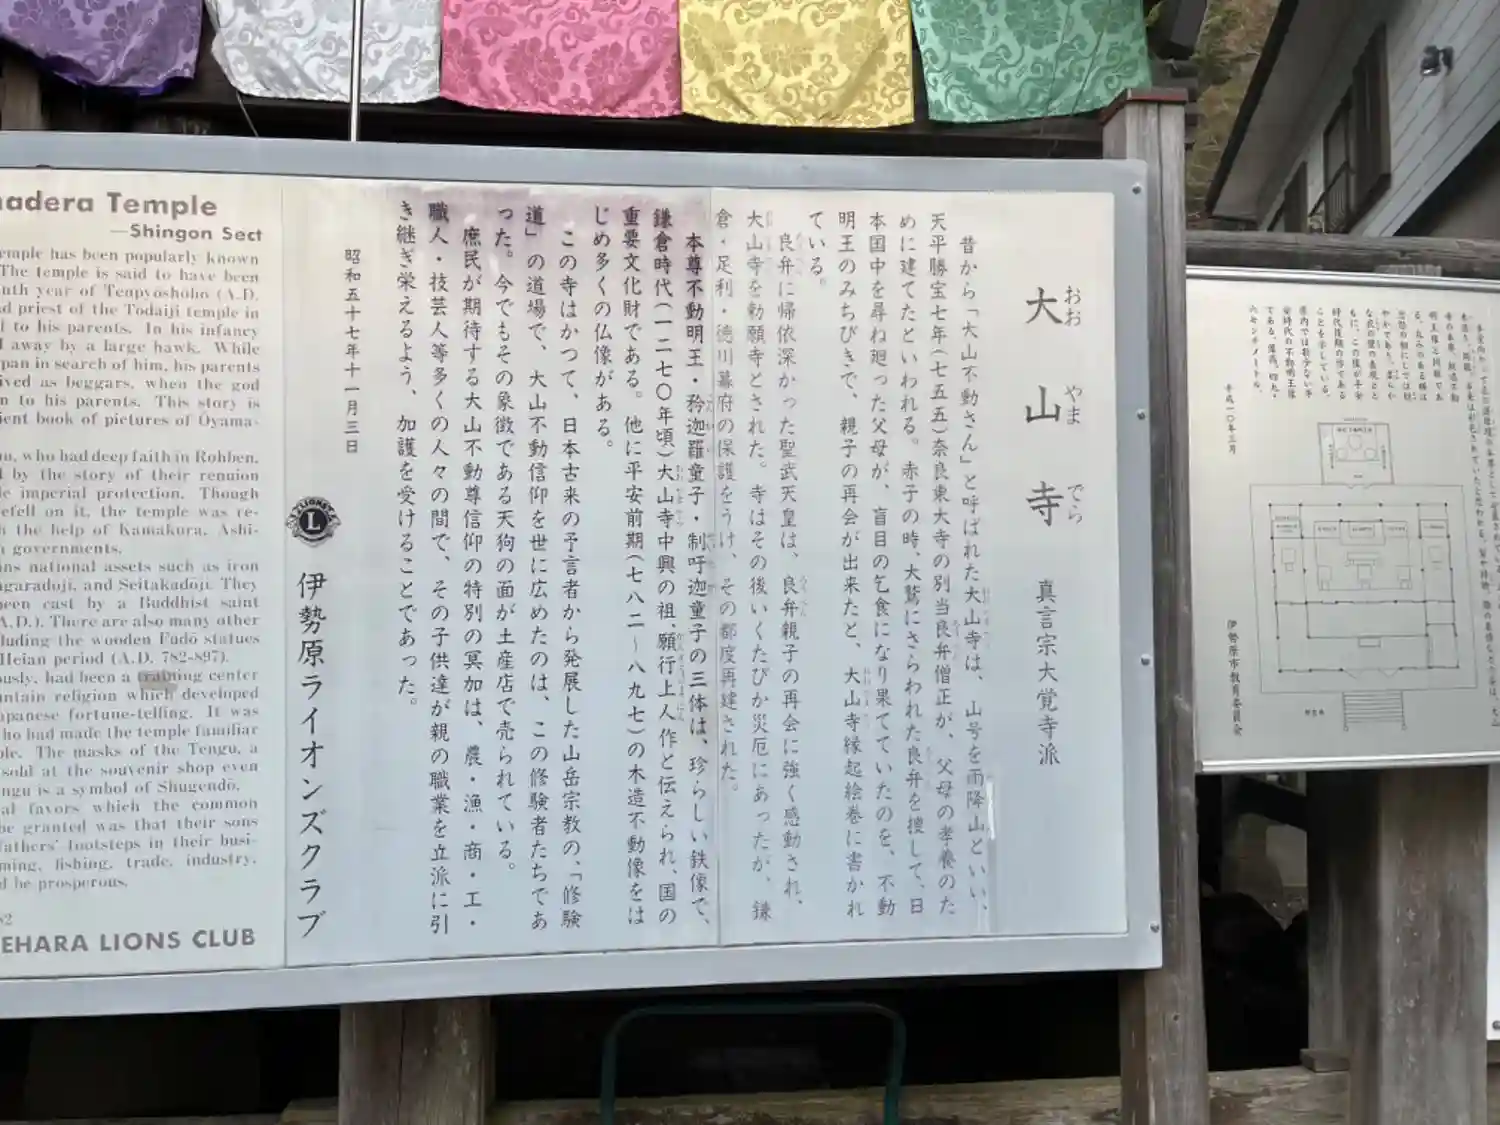 大山寺
おおやまでら
真言宗大覚寺派
昔から「大山不動さん」と呼ばれた大山寺は、山号を雨降山といい、
天平勝宝七年(七五五)奈良東大寺の別当良弁僧正が、父母の孝養のた
めに建てたといわれる。赤子の時、大鷲にさらわれた良弁を捜して、日
本国中を尋ね廻った父母が、盲目の乞食になり果てていたのを、不動
明王のみちびきで、親子の再会が出来たと、大山寺縁起絵巻に書かれ
ている。
良弁に帰依深かった聖武天皇は、良弁親子の再会に強く感動され、
大山寺を勅願寺とされた。寺はその後いくたびか災厄にあったが、鎌
倉・足利・徳川幕府の保護をうけ、その都度再建された。
本尊不動明王・矜迦羅童子・制吒迦童子の三体は、珍らしい鉄像で、
鎌倉時代(一二七〇年頃)大山寺中興の祖、願行上人作と伝えられ、国の
重要文化財である。他に平安前期(七八二〜八九七)の木造不動像をは
じめ多くの仏像がある。
この寺はかつて、日本古来の予言者から発展した山岳宗教の、「修験
道」の道場で、大山不動信仰を世に広めたのは、この修験者たちであ
った。今でもその象徴である天狗の面が土産店で売られている。
庶民が期待する大山不動尊信仰の特別の冥加は、農・漁・商・工・
職人・技芸人等多くの人々の間で、その子供達が親の職業を立派に引
き継ぎ栄えるよう、加護を受けることであった。
昭和五十七年十一月三日
LIONS
L
伊勢原ライオンズクラブ
adera Temple
—Shingon Sect
emple has been popularly known
The temple is said to have been
nth year of Tenpyōshōhō (A.D.
d priest of the Todaiji temple in
l to his parents. In his infancy
l away by a large hawk. While
pan in search of him, his parents
ived as beggars, when the god
n to his parents. This story is
ient book of pictures of Oyama-
o, who had deep faith in Rohben,
l by the story of their reunion
le imperial protection. Though
efell on it, the temple was re-
h the help of Kamakura, Ashi-
governments.
ns national assets such as iron
garadoji, and Seitakadoji. They
een cast by a Buddhist saint
A.D.). There are also many other
luding the wooden Fudō statues
Heian period (A.D. 782-897).
ously, had been a training center
untain religion which developed
apanese fortune-telling. It was
ho had made the temple familiar
ple. The masks of the Tengu, a
sold at the souvenir shop even
ngu is a symbol of Shugendō.
al favors which the common
be granted was that their sons
fathers' footsteps in their busi-
ming, fishing, trade, industry,
d be prosperous.
82
EHARA LIONS CLUB
平成一〇年三月
伊勢原市教育委員会